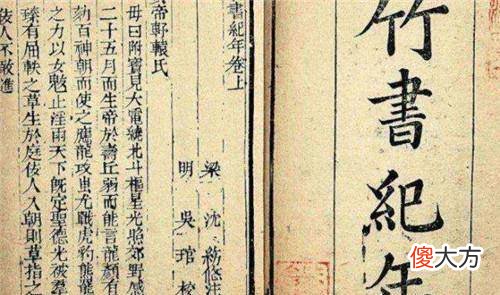 竹書紀年
書紀年卷上
梁 沈約
明 吳琯校
帝軒轅氏
母曰附寶見大電繞北斗樞星光照郊野感
二十五月而生帝於壽丘弱而能言龍顏有
劾百神朝而使之應龍攻蚩尤戰虎豹熊羆
之力以女魃止淫雨天下既定聖德光被羣
臻有屈軼之草生於庭佞人入朝則草指之
佞人不敢進
傻大方